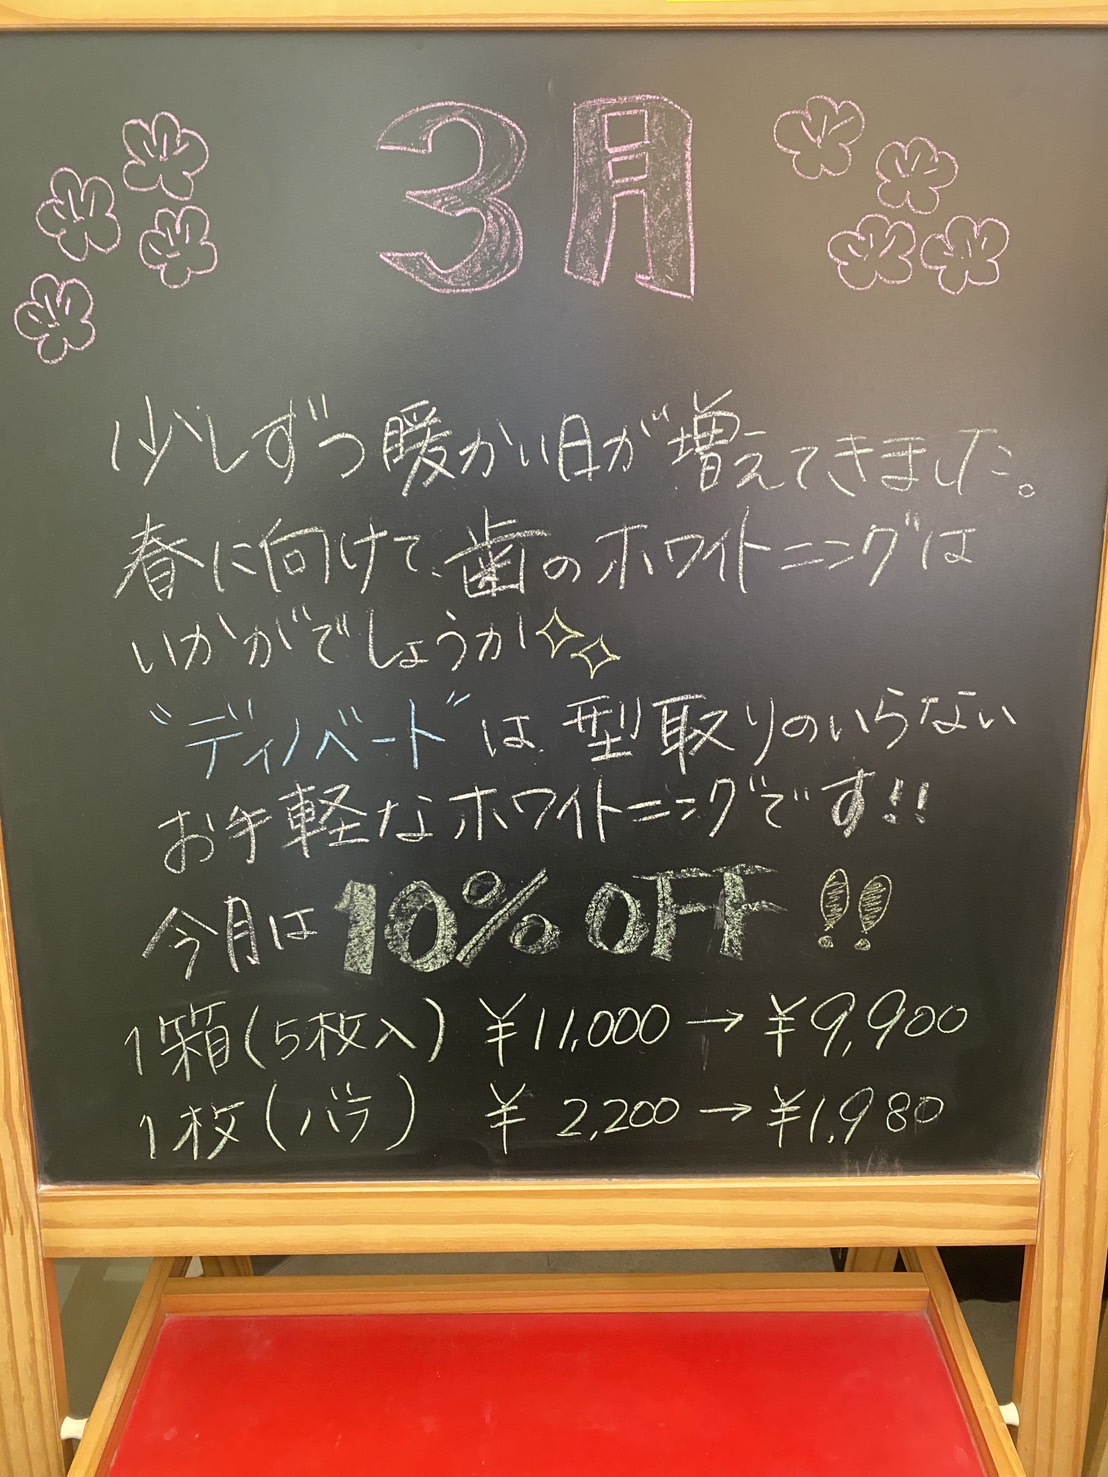 3月
少しずつ暖かい日が増えてきました。
春に向けて、歯のホワイトニングは
いかがでしょうか
"ディノベート"は、型取りのいらない
お手軽なホワイトニングです!!
今月は 10% OFF !!
1箱(5枚入) ¥11,000→¥9,900
1枚(バラ) ¥2,200→¥1,980